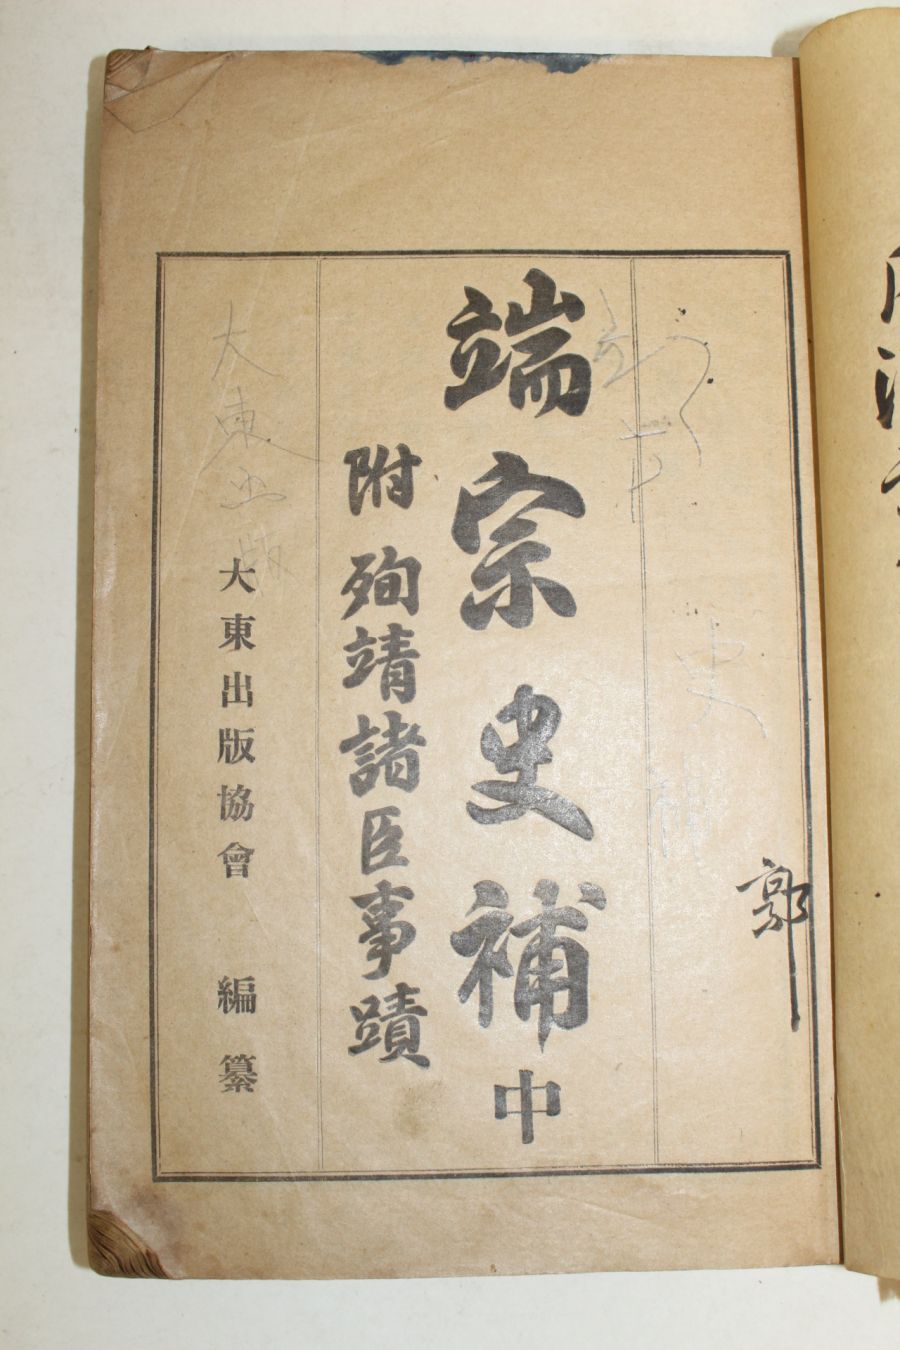 郭
端宗史補中
附 殉靖諸臣事蹟
大東出版協會 編纂
史補
大東出版